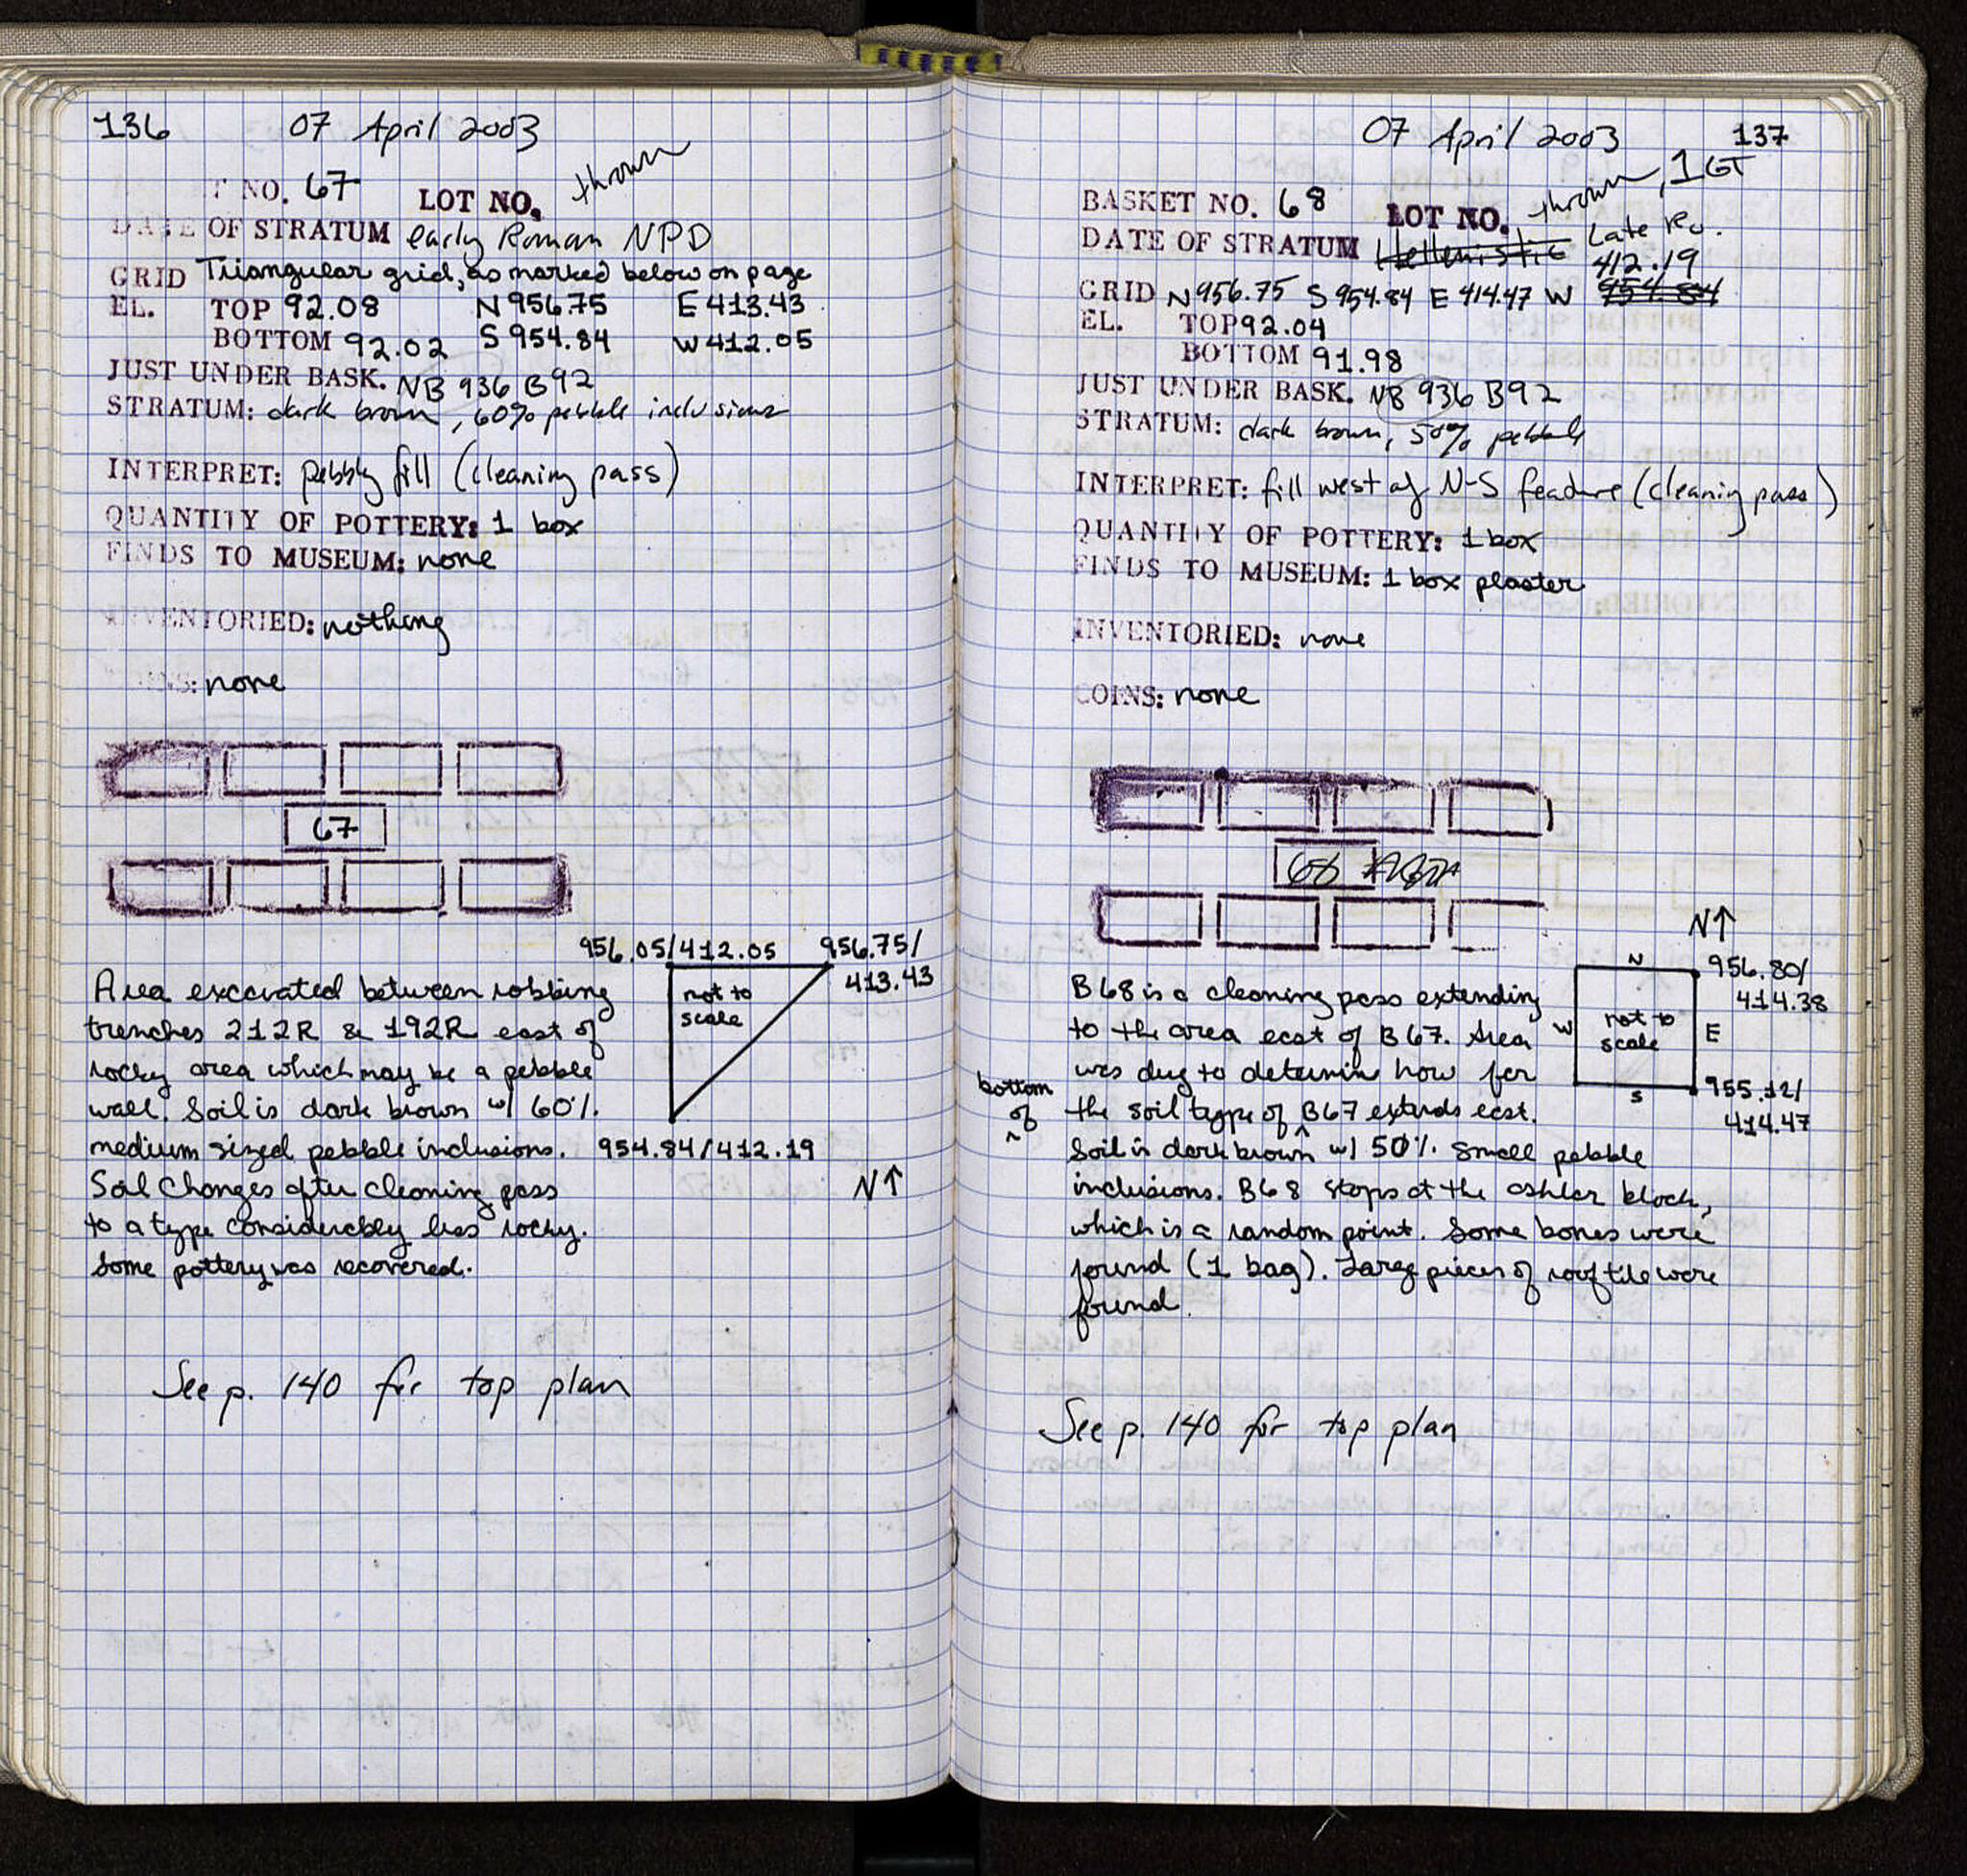 136 07 April 2003
NO. 67 LOT NO. thrown
DATE OF STRATUM early Roman NPD
GRID Triangular grid, as marked below on page
EL. TOP 92.08 N 956.75 E 413.43
BOTTOM 92.02 S 954.84 W 412.05
JUST UNDER BASK. NB 936 B92
STRATUM: dark brown, 60% pebble inclusions
INTERPRET: pebbly fill (cleaning pass)
QUANTITY OF POTTERY: 1 box
FINDS TO MUSEUM: none
INVENTORIED: nothing
COINS: none
67
956.05/412.05 956.75/
413.43
not to
scale
954.84/412.19
N↑
Area excavated between robbing
trenches 212R & 192R east of
rocky area which may be a pebble
wall. Soil is dark brown w/ 60%.
medium sized pebble inclusions.
Soil changes after cleaning pass
to a type considerably less rocky.
Some pottery was recovered.
See p. 140 for top plan
07 April 2003 137
BASKET NO. 68 LOT NO. thrown, 1 GT
DATE OF STRATUM Hellenistic Late Ro.
412.19
GRID N956.75 S 954.84 E 414.47 W 954.84
EL. TOP 92.04
BOTTOM 91.98
JUST UNDER BASK. NB 936 B92
STRATUM: dark brown, 50% pebble
INTERPRET: fill west of N-S feature (cleaning pass)
QUANTITY OF POTTERY: 1 box
FINDS TO MUSEUM: 1 box plaster
INVENTORIED: none
COINS: none
68
N↑
N
956.80/
414.38
W not to
scale E
S
955.12/
414.47
B68 is a cleaning pass extending
to the area east of B67. Area
was dug to determin how far
bottom
of
^
the soil type of B67 extends east.
^
Soil is dark brown w/ 50%. small pebble
inclusions. B68 stops at the ashlar block,
which is a random point. Some bones were
found (1 bag). Large pieces of roof tile were
found.
See p. 140 for top plan